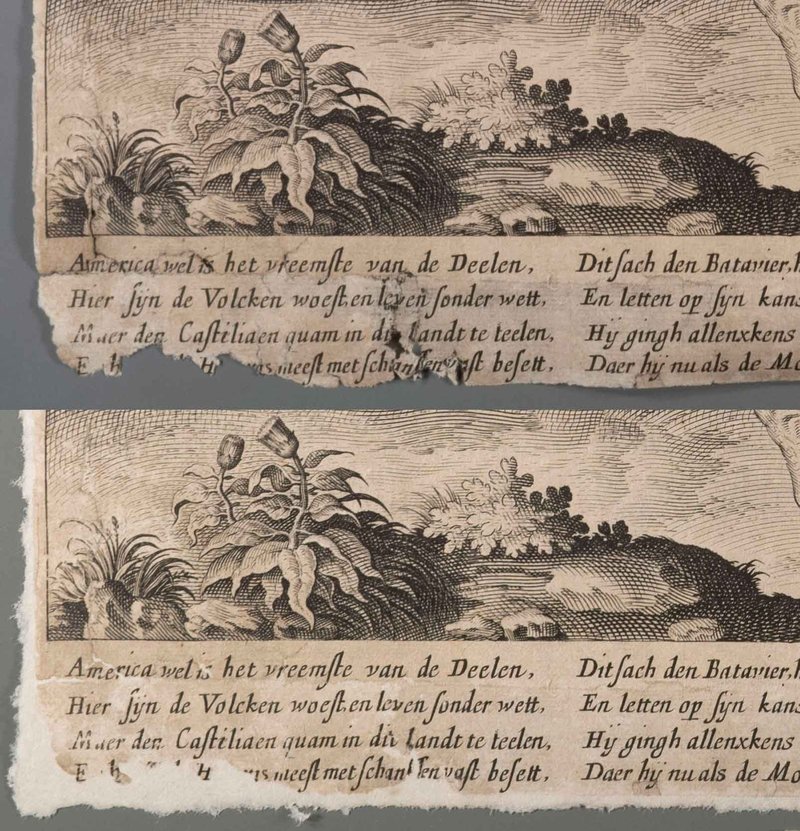 America wel is het vreemste van de Deelen,
Hier sijn de Volcken woest, en leven sonder wett,
Maer den Castiliaen quam in dit landt te teelen,
meest met schansen vast besett.
Dit sach den Batavier,
En letten op sijn kans
Hij gingh allenxkens
Daer hij nu als de Mo
America wel is het vreemste van de Deelen,
Hier sijn de Volcken woest, en leven sonder wett,
Maer den Castiliaen quam in dit landt te teelen,
meest met schansen vast besett.
Dit sach den Batavier,
En letten op sijn kans
Hij gingh allenxkens
Daer hij nu als de Mo